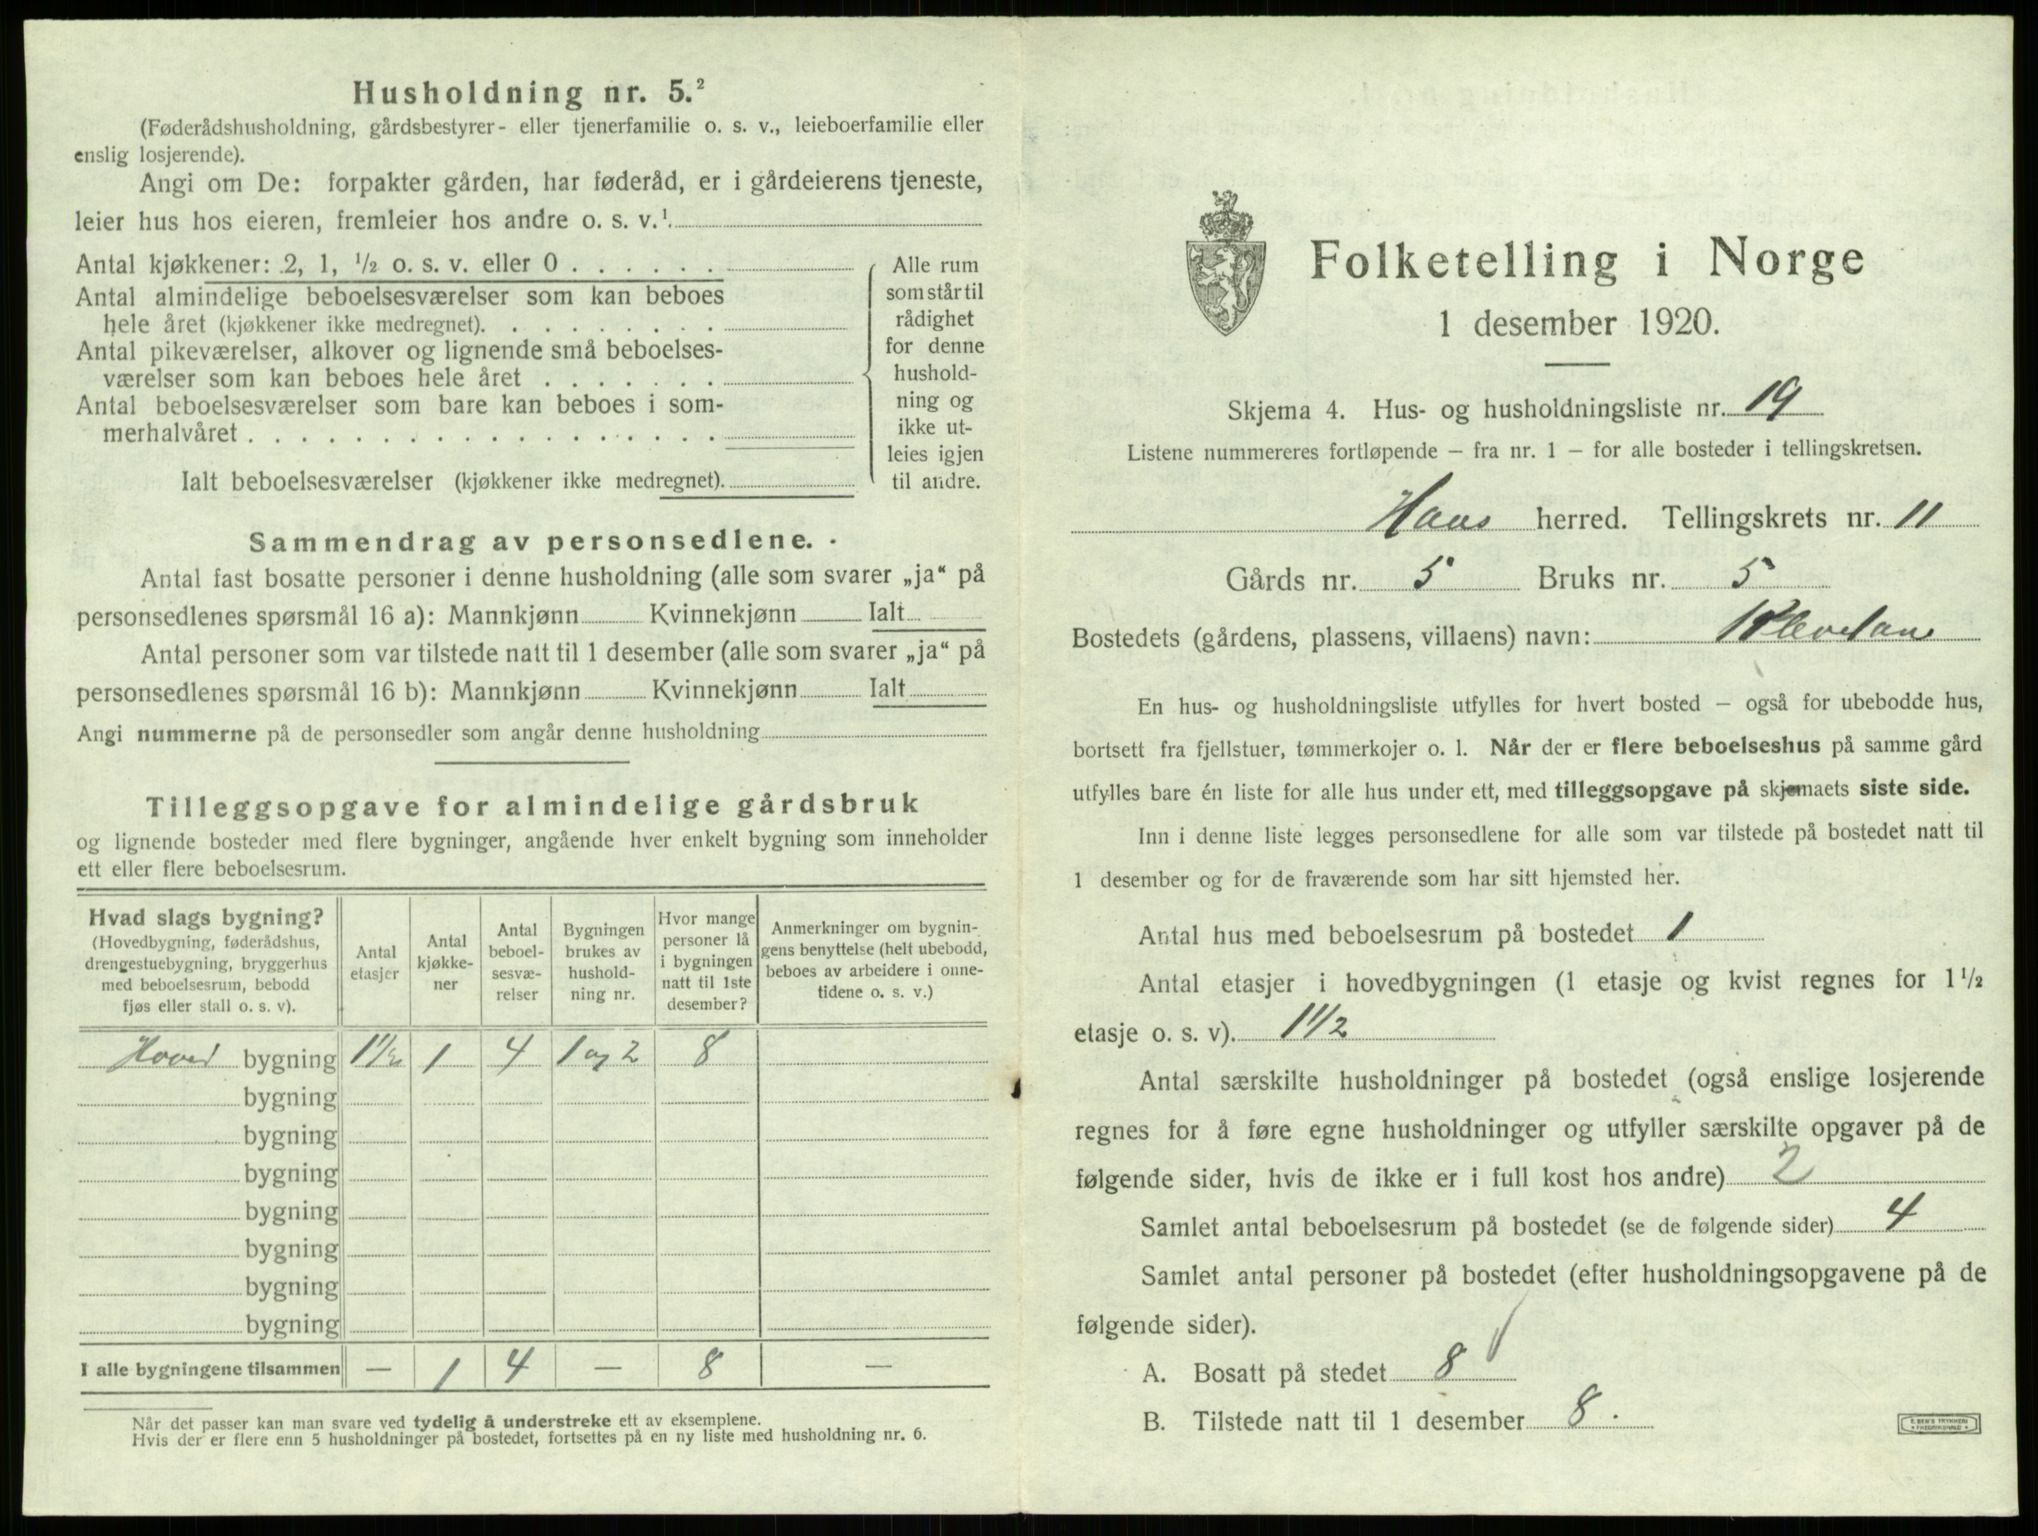 Husholdning nr. 5.²
(Føderådshusholdning, gårdsbestyrer- eller tjenerfamilie o. s. v., leieboerfamilie eller
enslig losjerende).
Angi om De: forpakter gården, har føderåd, er i gårdeierens tjeneste,
leier hus hos eieren, fremleier hos andre o. s. v.¹.
Antal kjøkkener: 2, 1, ½ o. s. v. eller 0
Antal almindelige beboelsesværelser som kan beboes
hele året (kjøkkener ikke medregnet).
Antal pikeværelser, alkover og lignende små beboelses-
værelser som kan beboes hele året
Antal beboelsesværelser som bare kan beboes i som-
merhalvåret
Ialt beboelsesværelser (kjøkkener ikke medregnet).
Alle rum
som står til
rådighet
for denne
hushold-
ning og
ikke ut-
leies igjen
til andre.
Sammendrag av personsedlene.
Antal fast bosatte personer i denne husholdning (alle som svarer „ja“ på
personsedlenes spørsmål 16 a): Mannkjønn Kvinnekjønn Ialt
Antal personer som var tilstede natt til 1 desember (alle som svarer „ja“ på
personsedlenes spørsmål 16 b): Mannkjønn Kvinnekjønn Ialt
Angi nummerne på de personsedler som angår denne husholdning
Tilleggsopgave for almindelige gårdsbruk
og lignende bosteder med flere bygninger, angående hver enkelt bygning som inneholder
ett eller flere beboelsesrum.
Hvad slags bygning?
(Hovedbygning, føderådshus,
drengestuebygning, bryggerhus
med beboelsesrum, bebodd
fjøs eller stall o. s. v).
Antal
etasjer
Antal
kjøkke-
ner
Antal
beboel-
sesvæ-
relser
Bygningen
brukes av
hushold-
ning nr.
Hvor mange
personer lå
i bygningen
natt til 1ste
desember?
Anmerkninger om bygnin-
gens benyttelse (helt ubebodd,
beboes av arbeidere i onne-
tidene o. s. v.)
Hoved bygning 1 1/2 1 4 1 og 2 8
bygning
bygning
bygning
bygning
bygning
bygning
bygning
I alle bygningene tilsammen — 1 4 — 8 —
Når det passer kan man svare ved tydelig å understreke ett av eksemplene.
Hvis der er flere enn 5 husholdninger på bostedet, fortsettes på en ny liste med husholdning nr. 6.
Folketelling i Norge
1 desember 1920.
Skjema 4. Hus- og husholdningsliste nr. 19
Listene nummereres fortløpende – fra nr. 1 – for alle bosteder i tellingskretsen.
Haus herred. Tellingskrets nr. 11
Gårds nr. 5 Bruks nr. 5
Bostedets (gårdens, plassens, villaens) navn:
En hus- og husholdningsliste utfylles for hvert bosted – også for ubebodde hus,
bortsett fra fjellstuer, tømmerkojer o. l. Når der er flere beboelseshus på samme gård
utfylles bare én liste for alle hus under ett, med tilleggsopgave på skjemaets siste side.
Inn i denne liste legges personsedlene for alle som var tilstede på bostedet natt til
1 desember og for de fraværende som har sitt hjemsted her.
Antal hus med beboelsesrum på bostedet 1
Antal etasjer i hovedbygningen (1 etasje og kvist regnes for 1½
etasje o. s. v). 1 1/2
Antal særskilte husholdninger på bostedet (også enslige losjerende
regnes for å føre egne husholdninger og utfyller særskilte opgaver på de
følgende sider, hvis de ikke er i full kost hos andre) 2
Samlet antal beboelsesrum på bostedet (se de følgende sider) 4
Samlet antal personer på bostedet (efter husholdningsopgavene på de
følgende sider).
A. Bosatt på stedet 8
B. Tilstede natt til 1 desember 8.